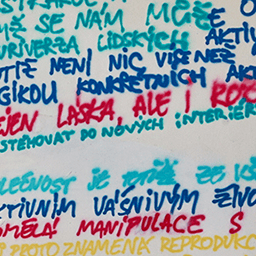 MŽ SE NÁM MŮŽE
UNIVERZA LIDSKÝCH AKTIV
NENÍ NIC VÍC NEŽ
GIKOU KONKRÉTNÍCH AK
JEN LÁSKA, ALE I ROZ
STĚHOVAT DO NOVÝCH INTERIÉR
LEČNOST JE ZE VŠ
KTIVNÍM VÁŠNIVÝM ŽIVO
MANIPULACE S
PROTO ZNAMENÁ REPRODUKC